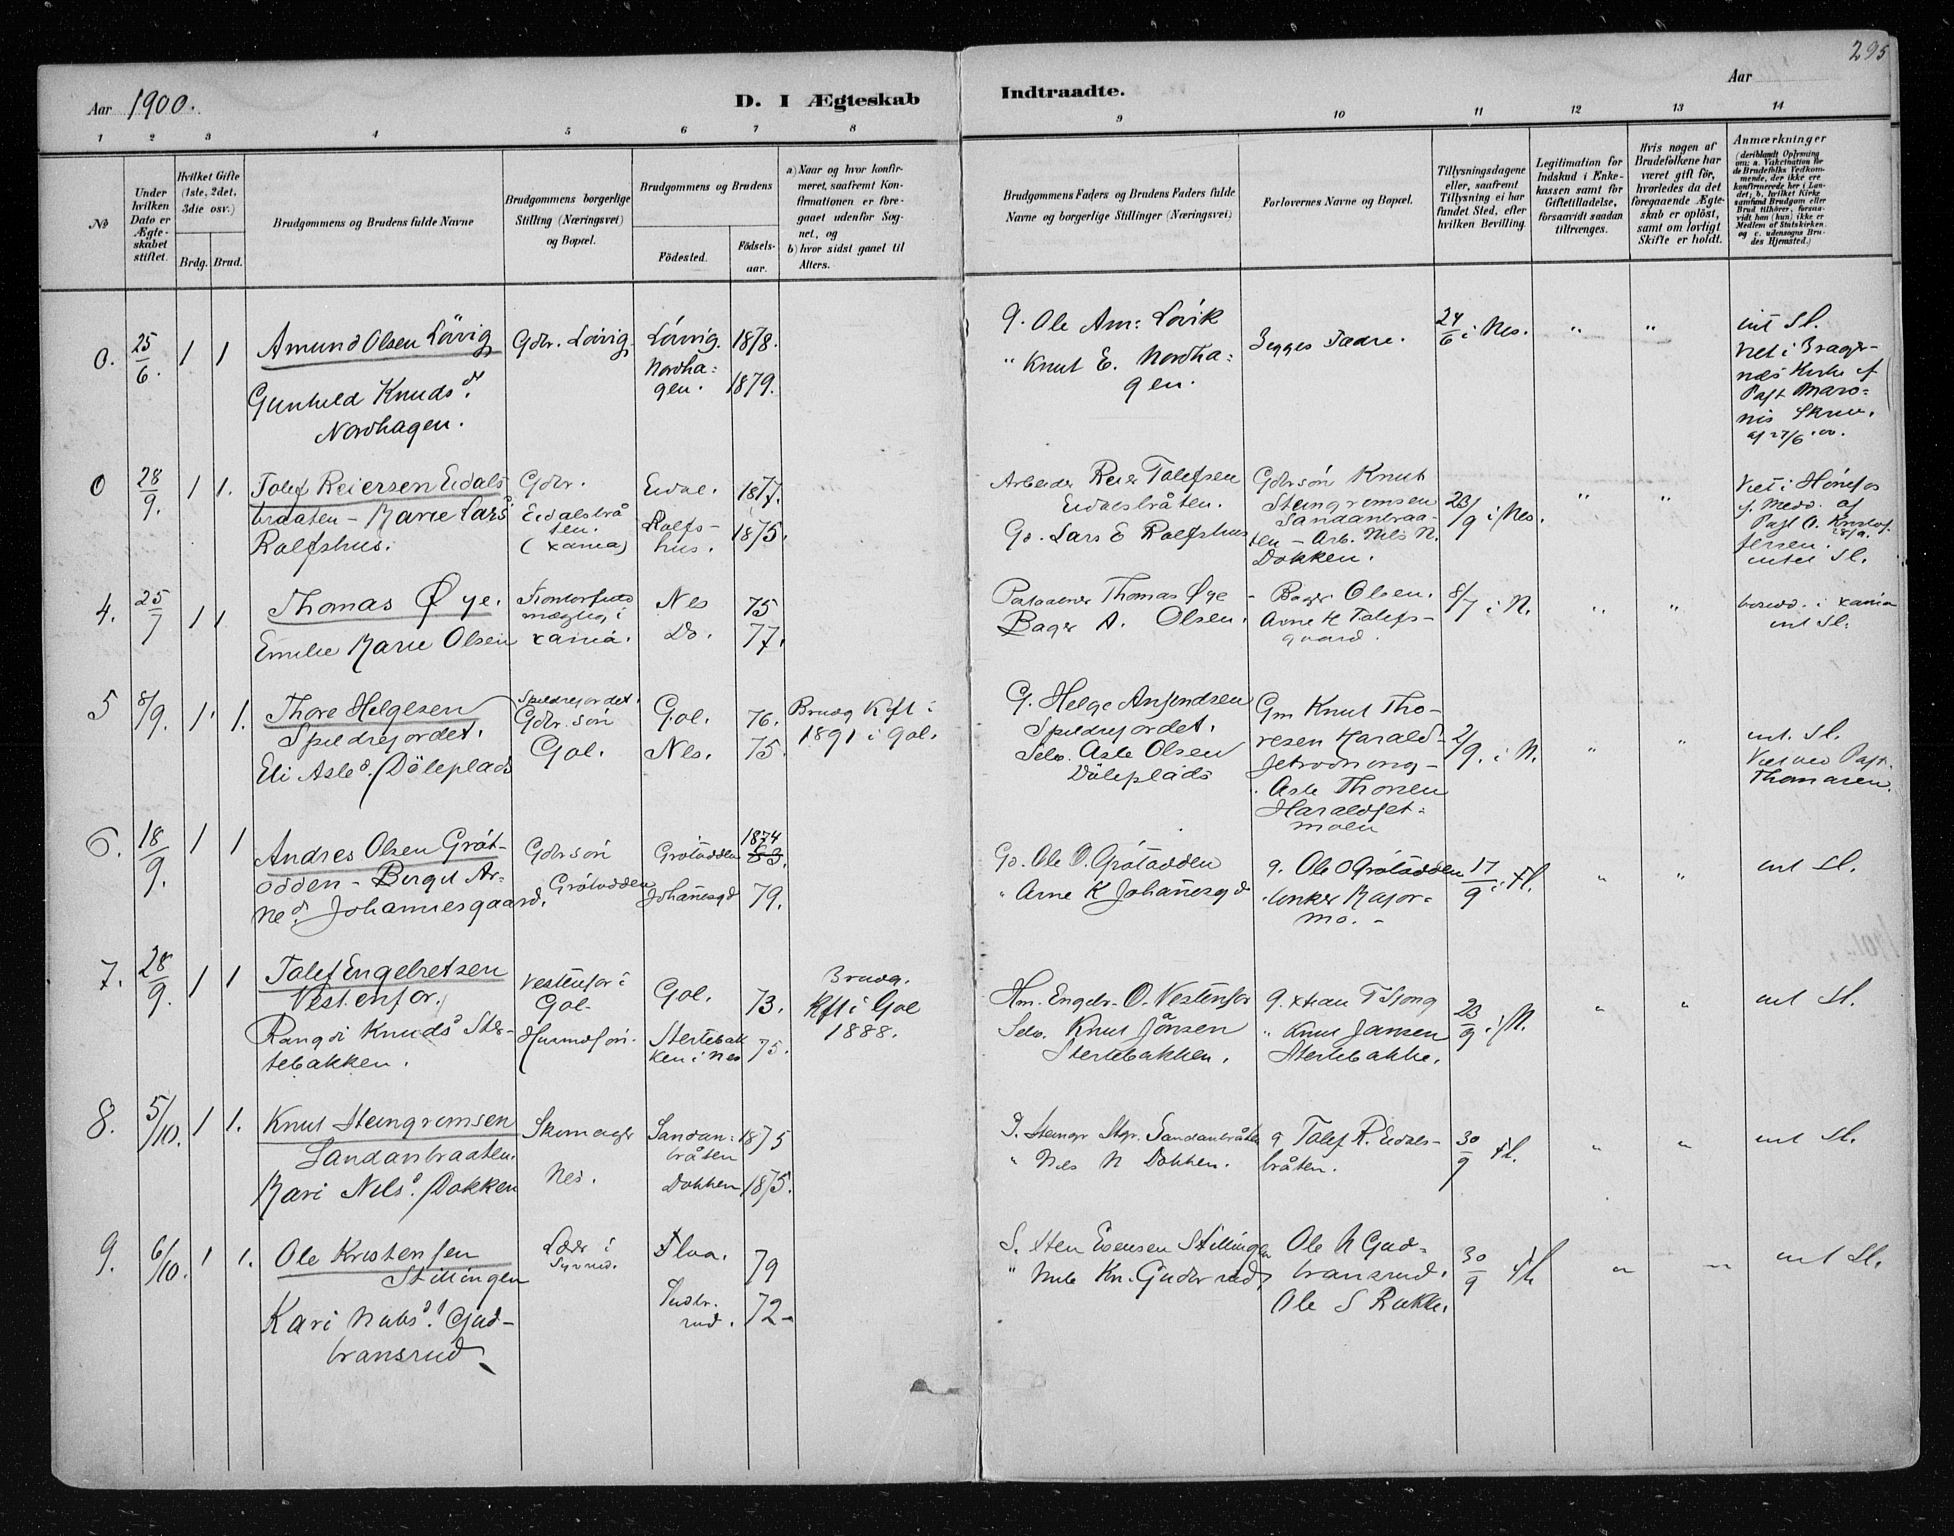 295
Aar 1900.
D. I Ægteskab Indtraadte.
Aar
1 2 3 4 5 6 7 8 9 10 11 12 13 14
No
Under hvilken Dato er Ægteskabet stiftet.
Hvilket Gifte (1ste, 2det, 3die osv.)
Brdg. Brud.
Brudgommens og Brudens fulde Navne
Brudgommens borgerlige Stilling (Næringsvei) og Bopæl.
Brudgommens og Brudens
Födested. Födsels-aar.
a) Naar og hvor konfirmeret, saafremt Konfirmationen er foregaaet udenfor Sognet, og
b) hvor sidst gaaet til Alters.
Brudgommens Faders og Brudens Faders fulde Navne og borgerlige Stillinger (Næringsvei)
Forlovernes Navne og Bopæl.
Tillysningsdagene eller, saafremt Tillysning ei har fundet Sted, efter hvilken Bevilling.
Legitimation for Indskud i Enkekassen samt for Giftetilladelse, forsaavidt saadan tiltrænges.
Hvis nogen af Brudefolkene har været gift før, hvorledes da det foregaaende Ægteskab er oplöst, samt om lovligt Skifte er holdt.
Anmærkninger
(deriblandt Oplysning om: a. Vakcination for de Brudefolks Vedkommende, der ikke ere konfirmerede her i Landet; b. hvilket Kirkesamfund Brudgom eller Brud tilhörer, forsaavidt han (hun) ikke er Medlem af Statskirken, og c. udensogns Brudes Hjemsted.)
0. 25/6. 1 1
Amund Olsen Lövig
Gunhild Knudsd.
Nordhagen.
Gdbr. Lövig.
Lövig. 1878.
Nordha=
gen. 1879.
g. Ole Am: Lövik
" Knut E. Nordha=
gen.
Begges Fadre.
24/6 i Nes.
" "
int Sl.
Viet i Brager-
næs Kirke af
Past Maro=
nis
af 27/6.00.
0 28/9. 1 1.
Tolef Reiersen Eidals
braaten - Marie Larsd
Rolfshus.
Gdbr.
Eidalsbrå
ten.
(Xania)
Eidal. 1877.
Rolfs-
hus. 1875.
Arbeider Reier Tolefsen
Eidalsbråten.
Go. Lars E Rolfshus
Gdbrsön Knut
Steingremsen
Sandanbraa-
ten - Arb. Nils N.
Dokken.
23/9 i Nes.
" "
Viet i Hönefos
af
Past O.
intet Sl.
4. 25/7 1 1.
Thomas Øye.
Emilie Marie Olsen
i
Xania.
Nes 75
Do. 77.
Thomas Øye
Bager A. Olsen.
- Bager Olsen.
Arne H Tolefs-
gaard.
8/7 i N.
" "
i Xania
int Sl.
5 8/9. 1. 1.
Thore Helgesen
Spildrejordet.
Eli Aslesd. Döleplads
Spildrejordet.
Gdbr. sön
Gol.
Gol. 76.
Nes. 75.
Brudg Kft i
1891 i Gol.
G. Helge
Spildrejordet.
Selv. Asle Olsen
Döleplads
Gm Knut Tho-
resen Harald-
" Asle Thorsen
Haraldset-
moen
2/9. i N.
" "
int. Sl.
Viet ved Past.
Thomasen.
6. 18/9. 1 1
Andres Olsen Gröt-
odden - Bergit Ar-
nesd. Johannesgaard.
Gdbrsön
Grötodden
Grötodden 1874
Johanesgd 79.
Go. Ole O. Grötodden
" Arne K Johanesgd
g. Ole O Grötodden
- unkar Major-
mo. -
17/9 i Fl.
" "
int Sl.
7. 28/9. 1 1
Tolef Engebretsen
Vestenfor.
Rangdi Knudsd Ster-
tebakken.
Vestenfor i
Gol-
Husmdsön-
Gol. 73.
Stertebak
ken i Nes 75.
Brudg.
Kft i Gol
1888.
Hm. Engebr. O. Vestenfor
Selv. Knut Jönsen
Stertebakken.
g. Xtian T Tjong
" Knut Jansen
Stertebakke.
23/9 i N.
" "
int Sl.
8. 5/10. 1 1.
Knut Steingremsen
Sandanbraaten.
Mari Nilsd. Dokken
Skomager
Nes.
Sandan= 1875
bråten
Dokken 1875.
g. Steingr Stgr. Sandanbråten
" Nils N Dokken.
g Tolef R. Eidals-
bråten.
30/9 Fl.
" "
int Sl.
9. 6/10. 1 1.
Ole Kristensen
Stillingen
Kari Nubsd. Gud-
bransrud
i
Flaa. 79
Gudbr.
rud. 72-
S. Sten Evensen Stillingen
" Nub Kn. Gudbr.rud,
Ole N Gud-
bransrud.
Ole S Rukke.
30/9 Fl
" "
int Sl.